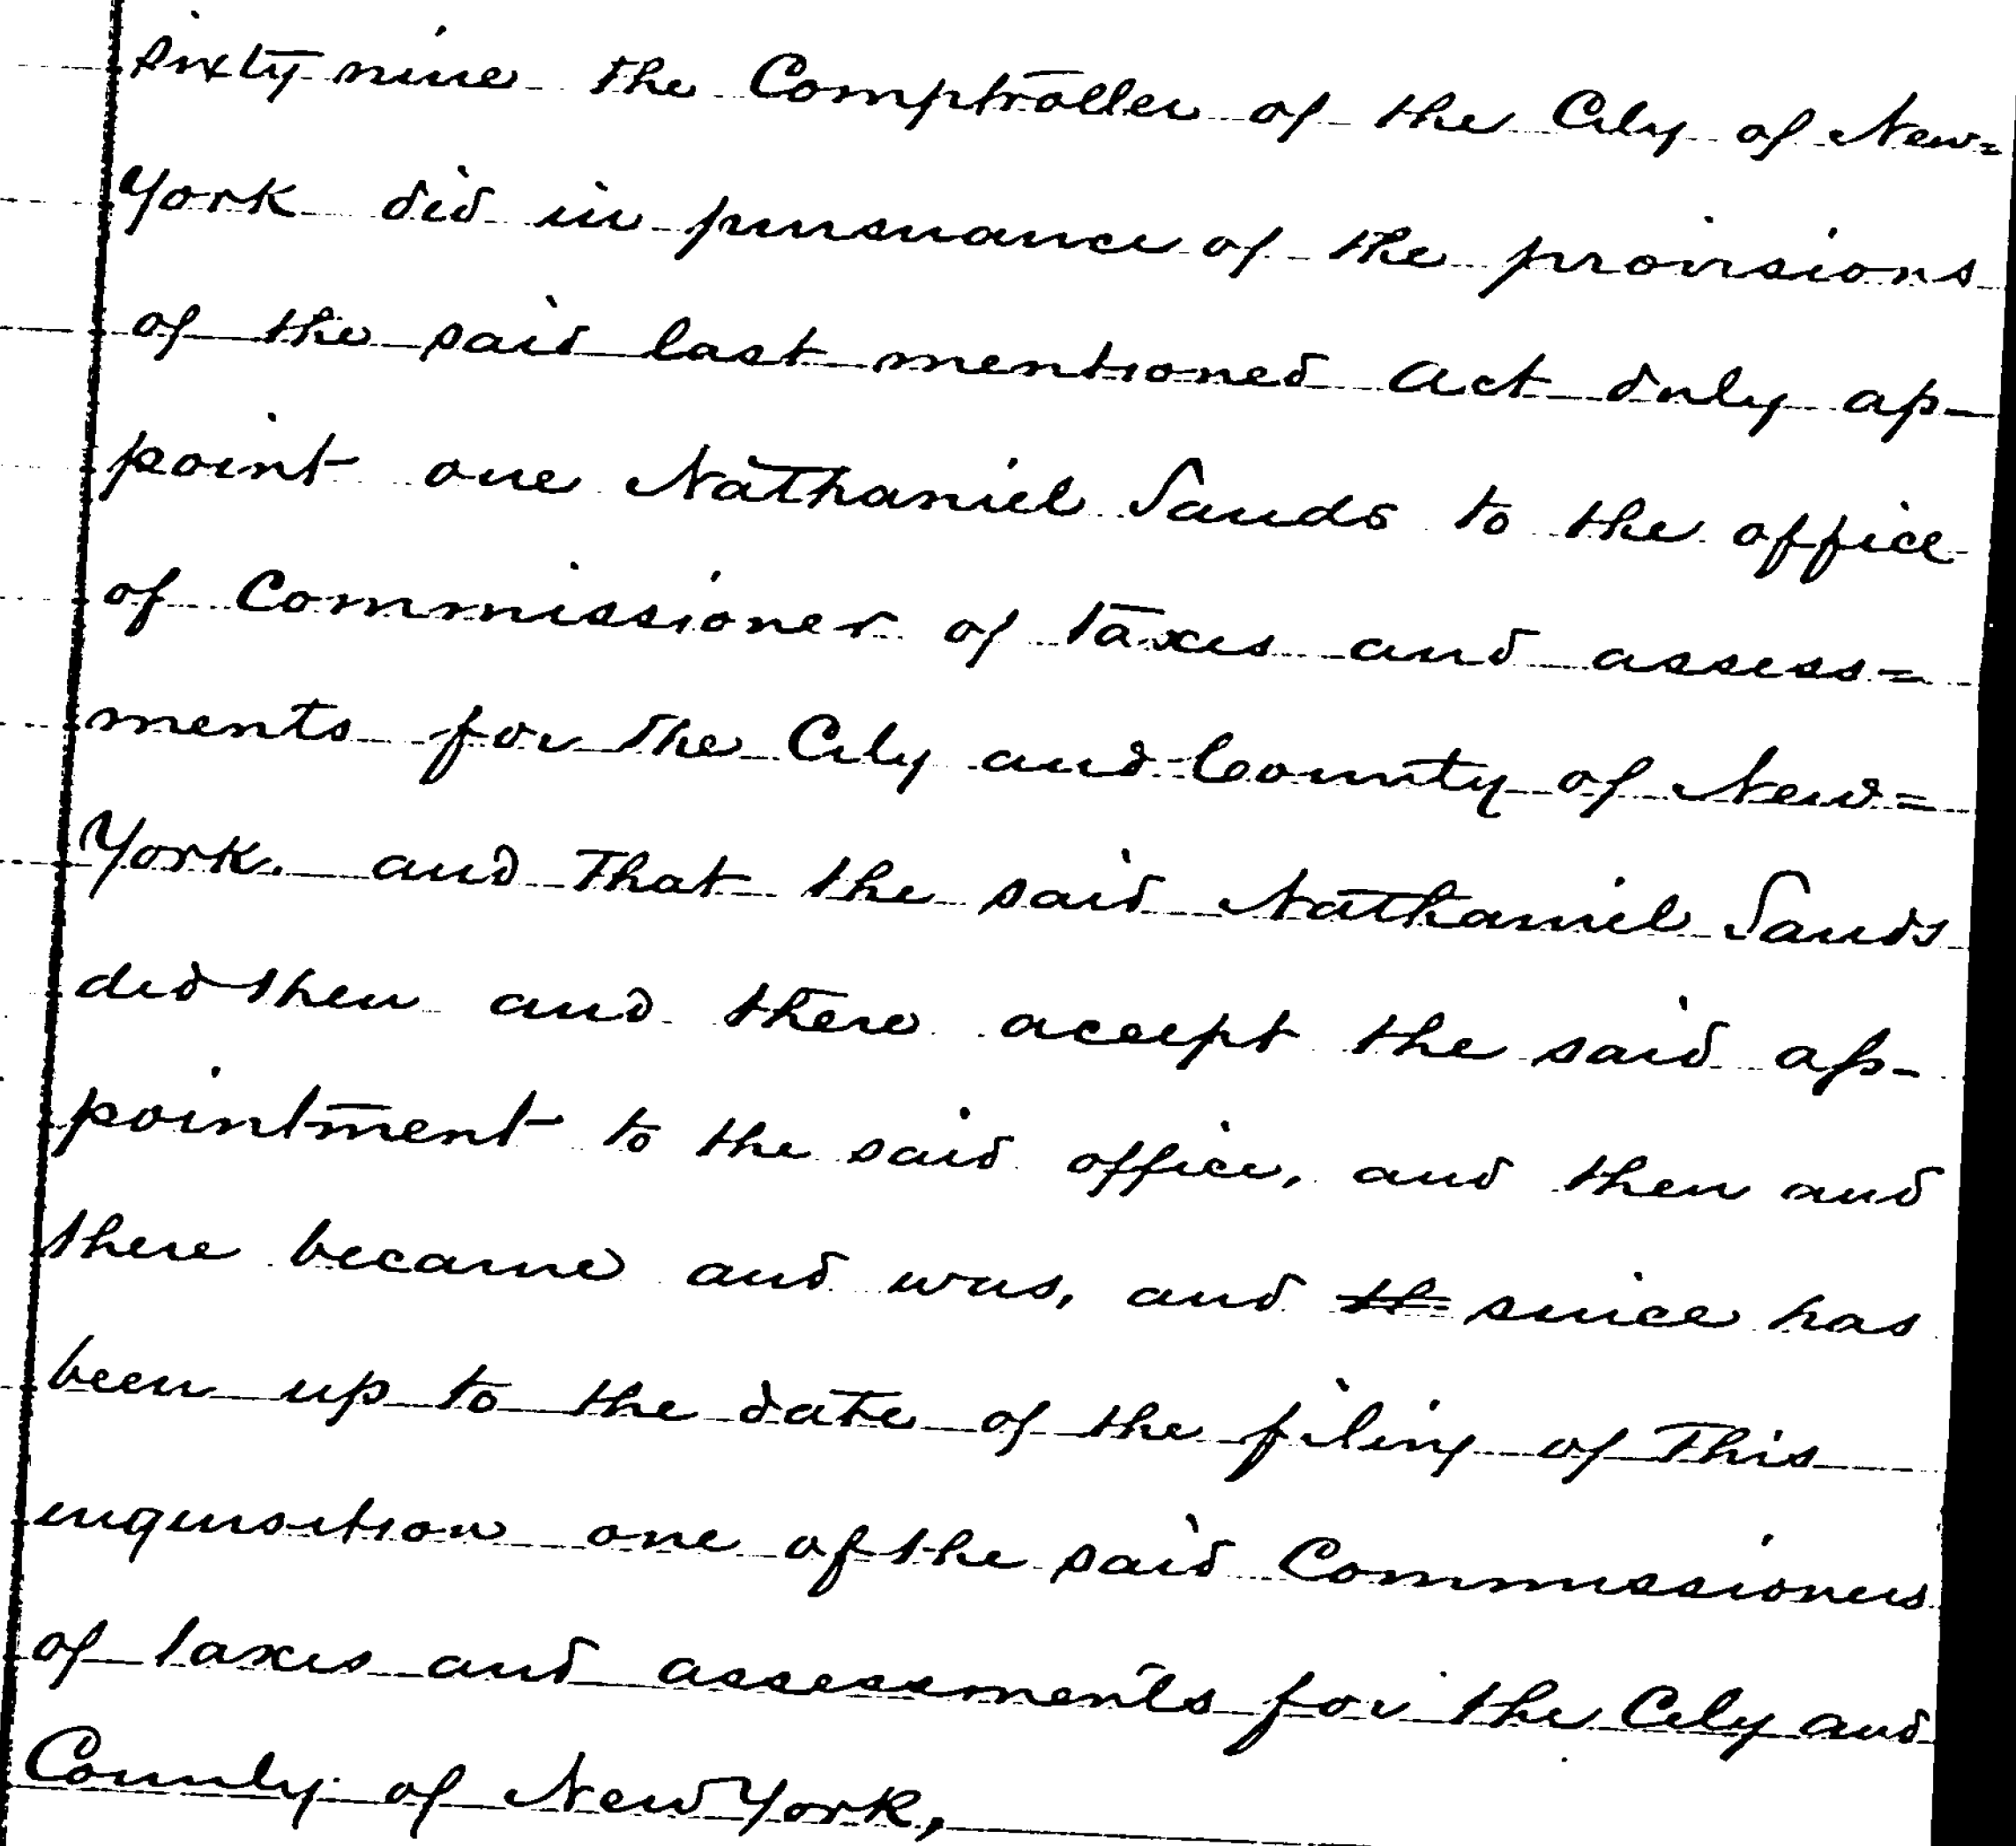 sixty nine the Comptroller of the City of New=
York did in pursuance of the provisions
of the said last mentioned act duly ap-
point one Nathaniel Sands to the office
of Commissioner of taxes and assess=
ments for the City and County of New=
York. and that the said Nathaniel Sands
did then and there accept the said ap-
pointment to the said office, and then and
there became and was, and th since has
been up to the date of the filing of this
inquisition one of the said Commissioners
of taxes and assessments for the City and
County of New York,